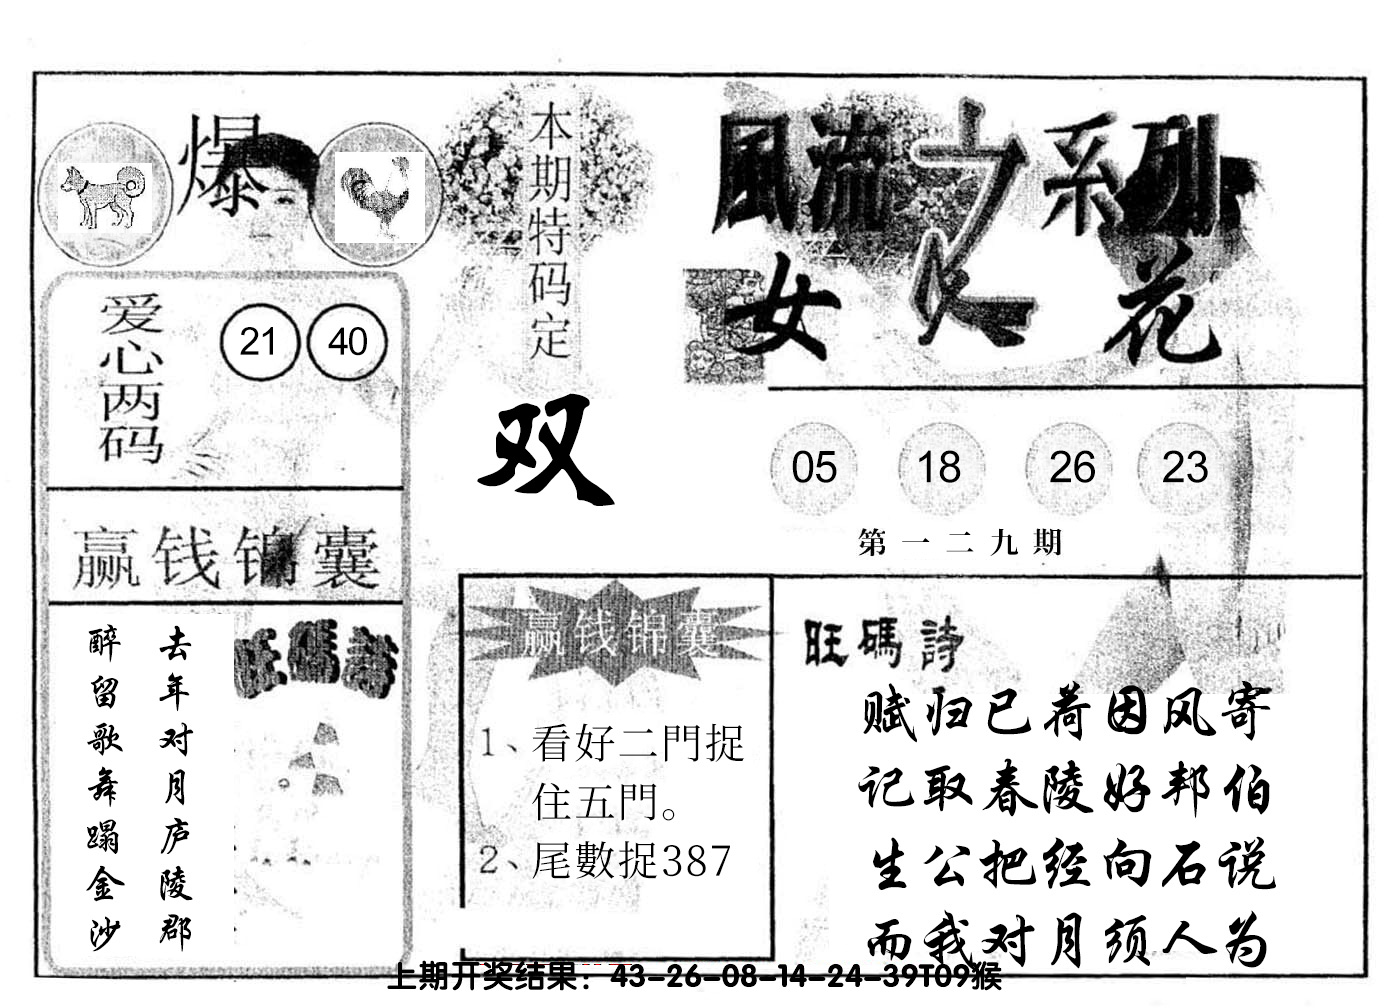 爆
本期特码定
双
風流之系列
女人花
爱心两码
21 40
05 18 26 23
第一二九期
赢钱锦囊
去年对月庐陵郡
醉留歌舞蹋金沙
旺碼詩
赢钱锦囊
1、看好二門捉
住五門。
2、尾數捉387
旺碼詩
赋归已荷因风寄
记取春陵好邦伯
生公把经向石说
而我对月须人为
上期开奖结果：43-26-08-14-24-39T09猴